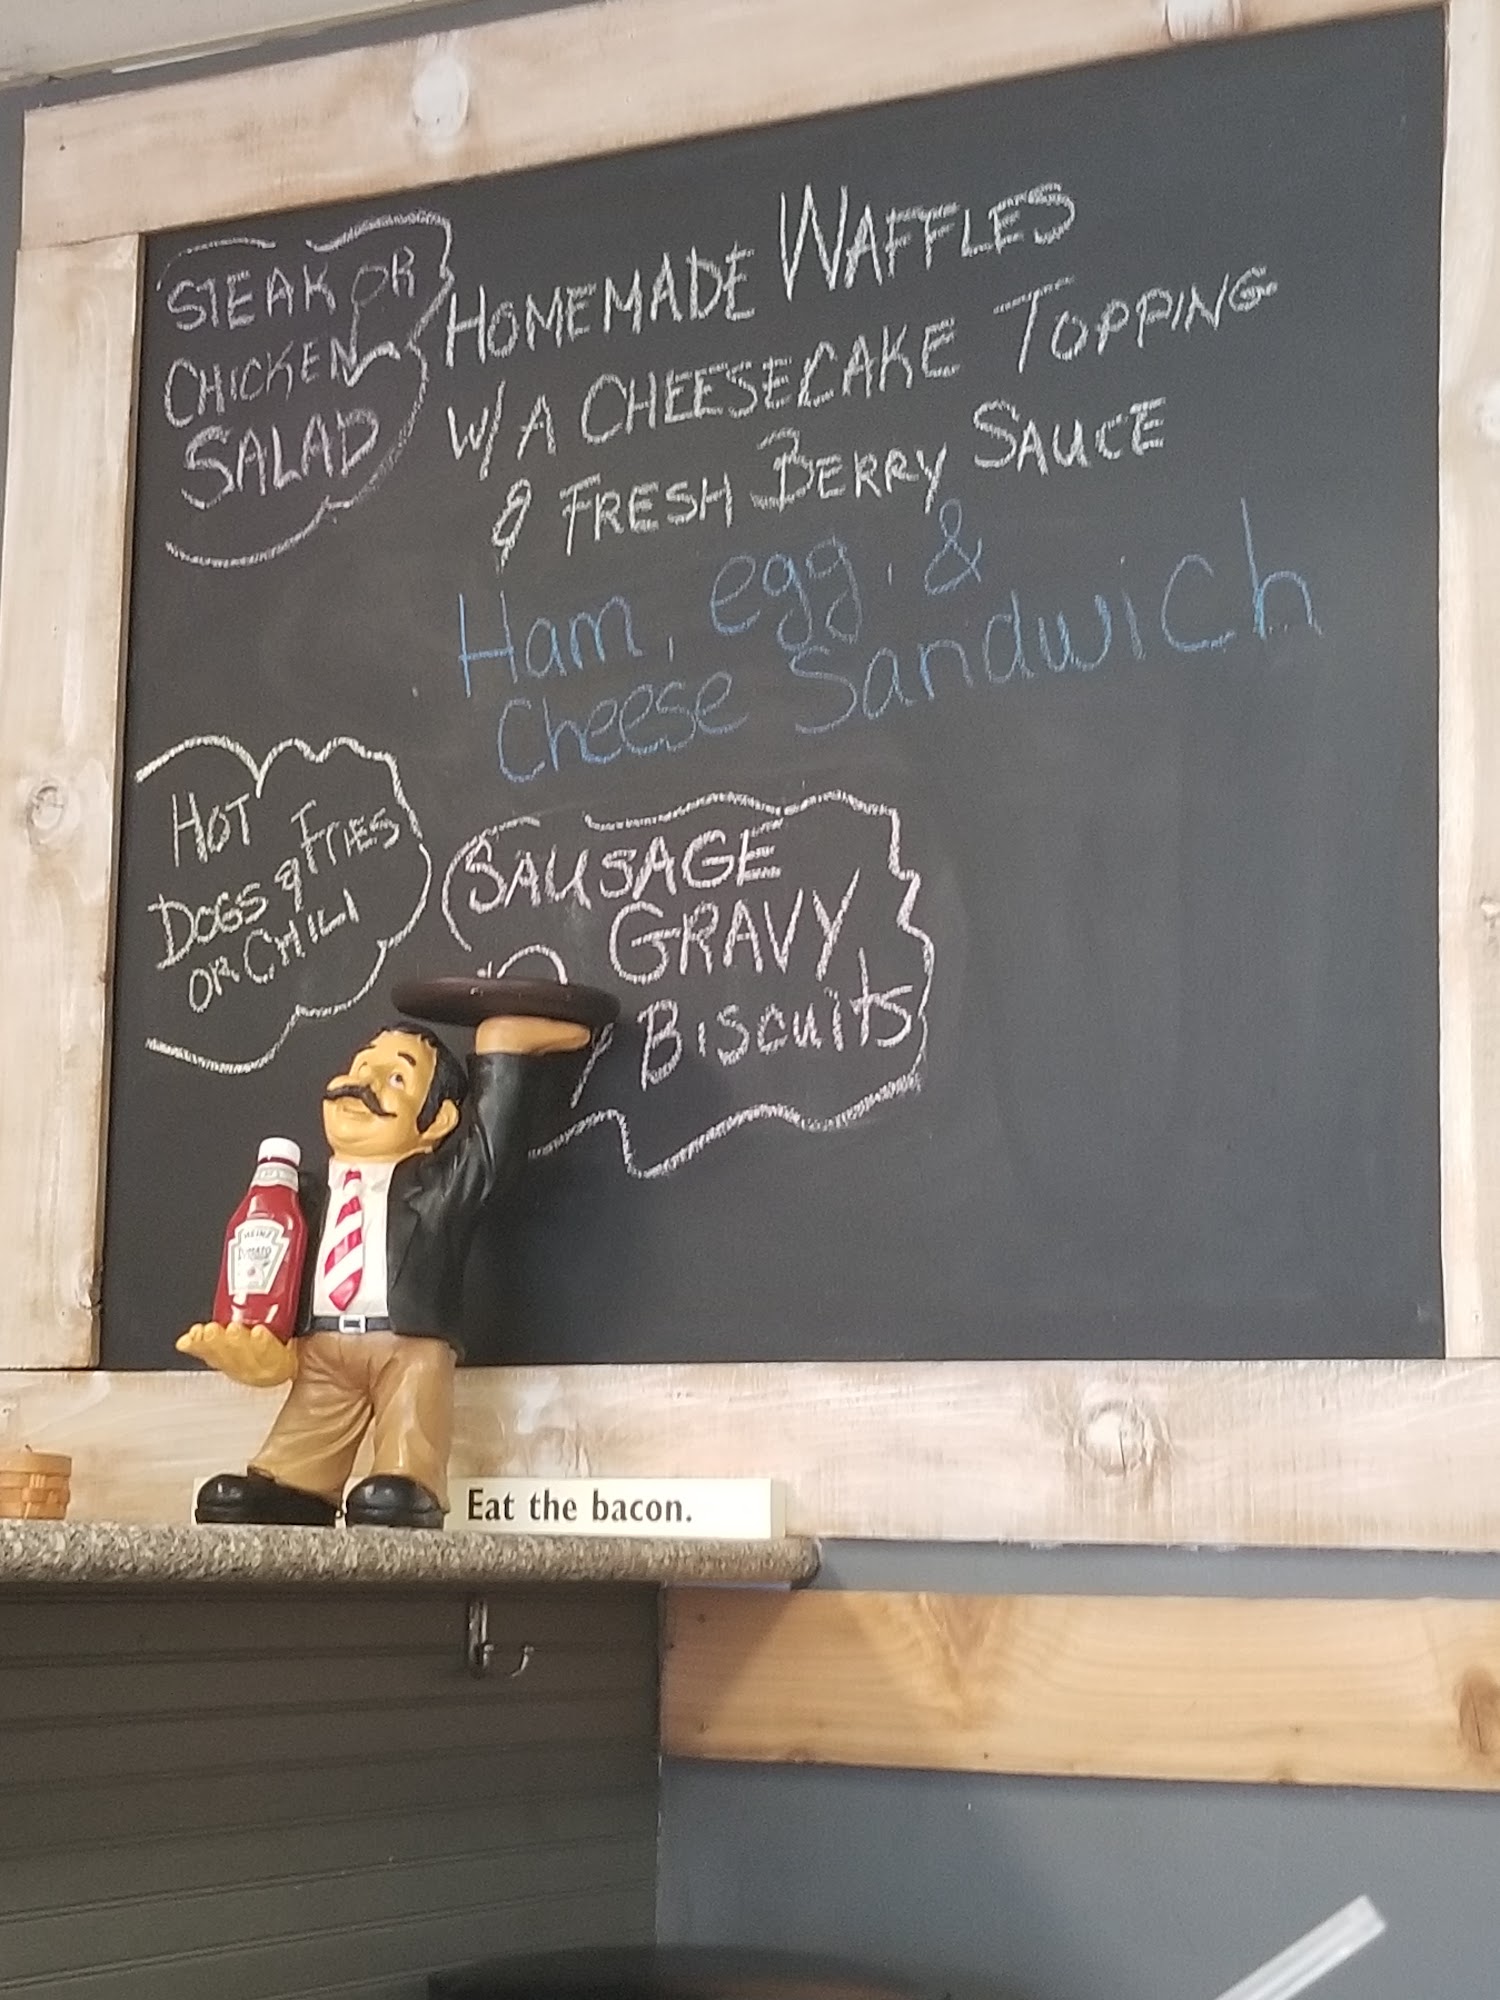 STEAK OR
CHICKEN
SALAD
HOMEMADE WAFFLES
W/A CHEESECAKE TOPPING
& FRESH BERRY SAUCE
Ham, egg, &
Cheese Sandwich
HOT
DOGS & FRIES
OR CHILI
SAUSAGE
GRAVY
BISCUITS
HEINZ
TOMATO
Eat the bacon.